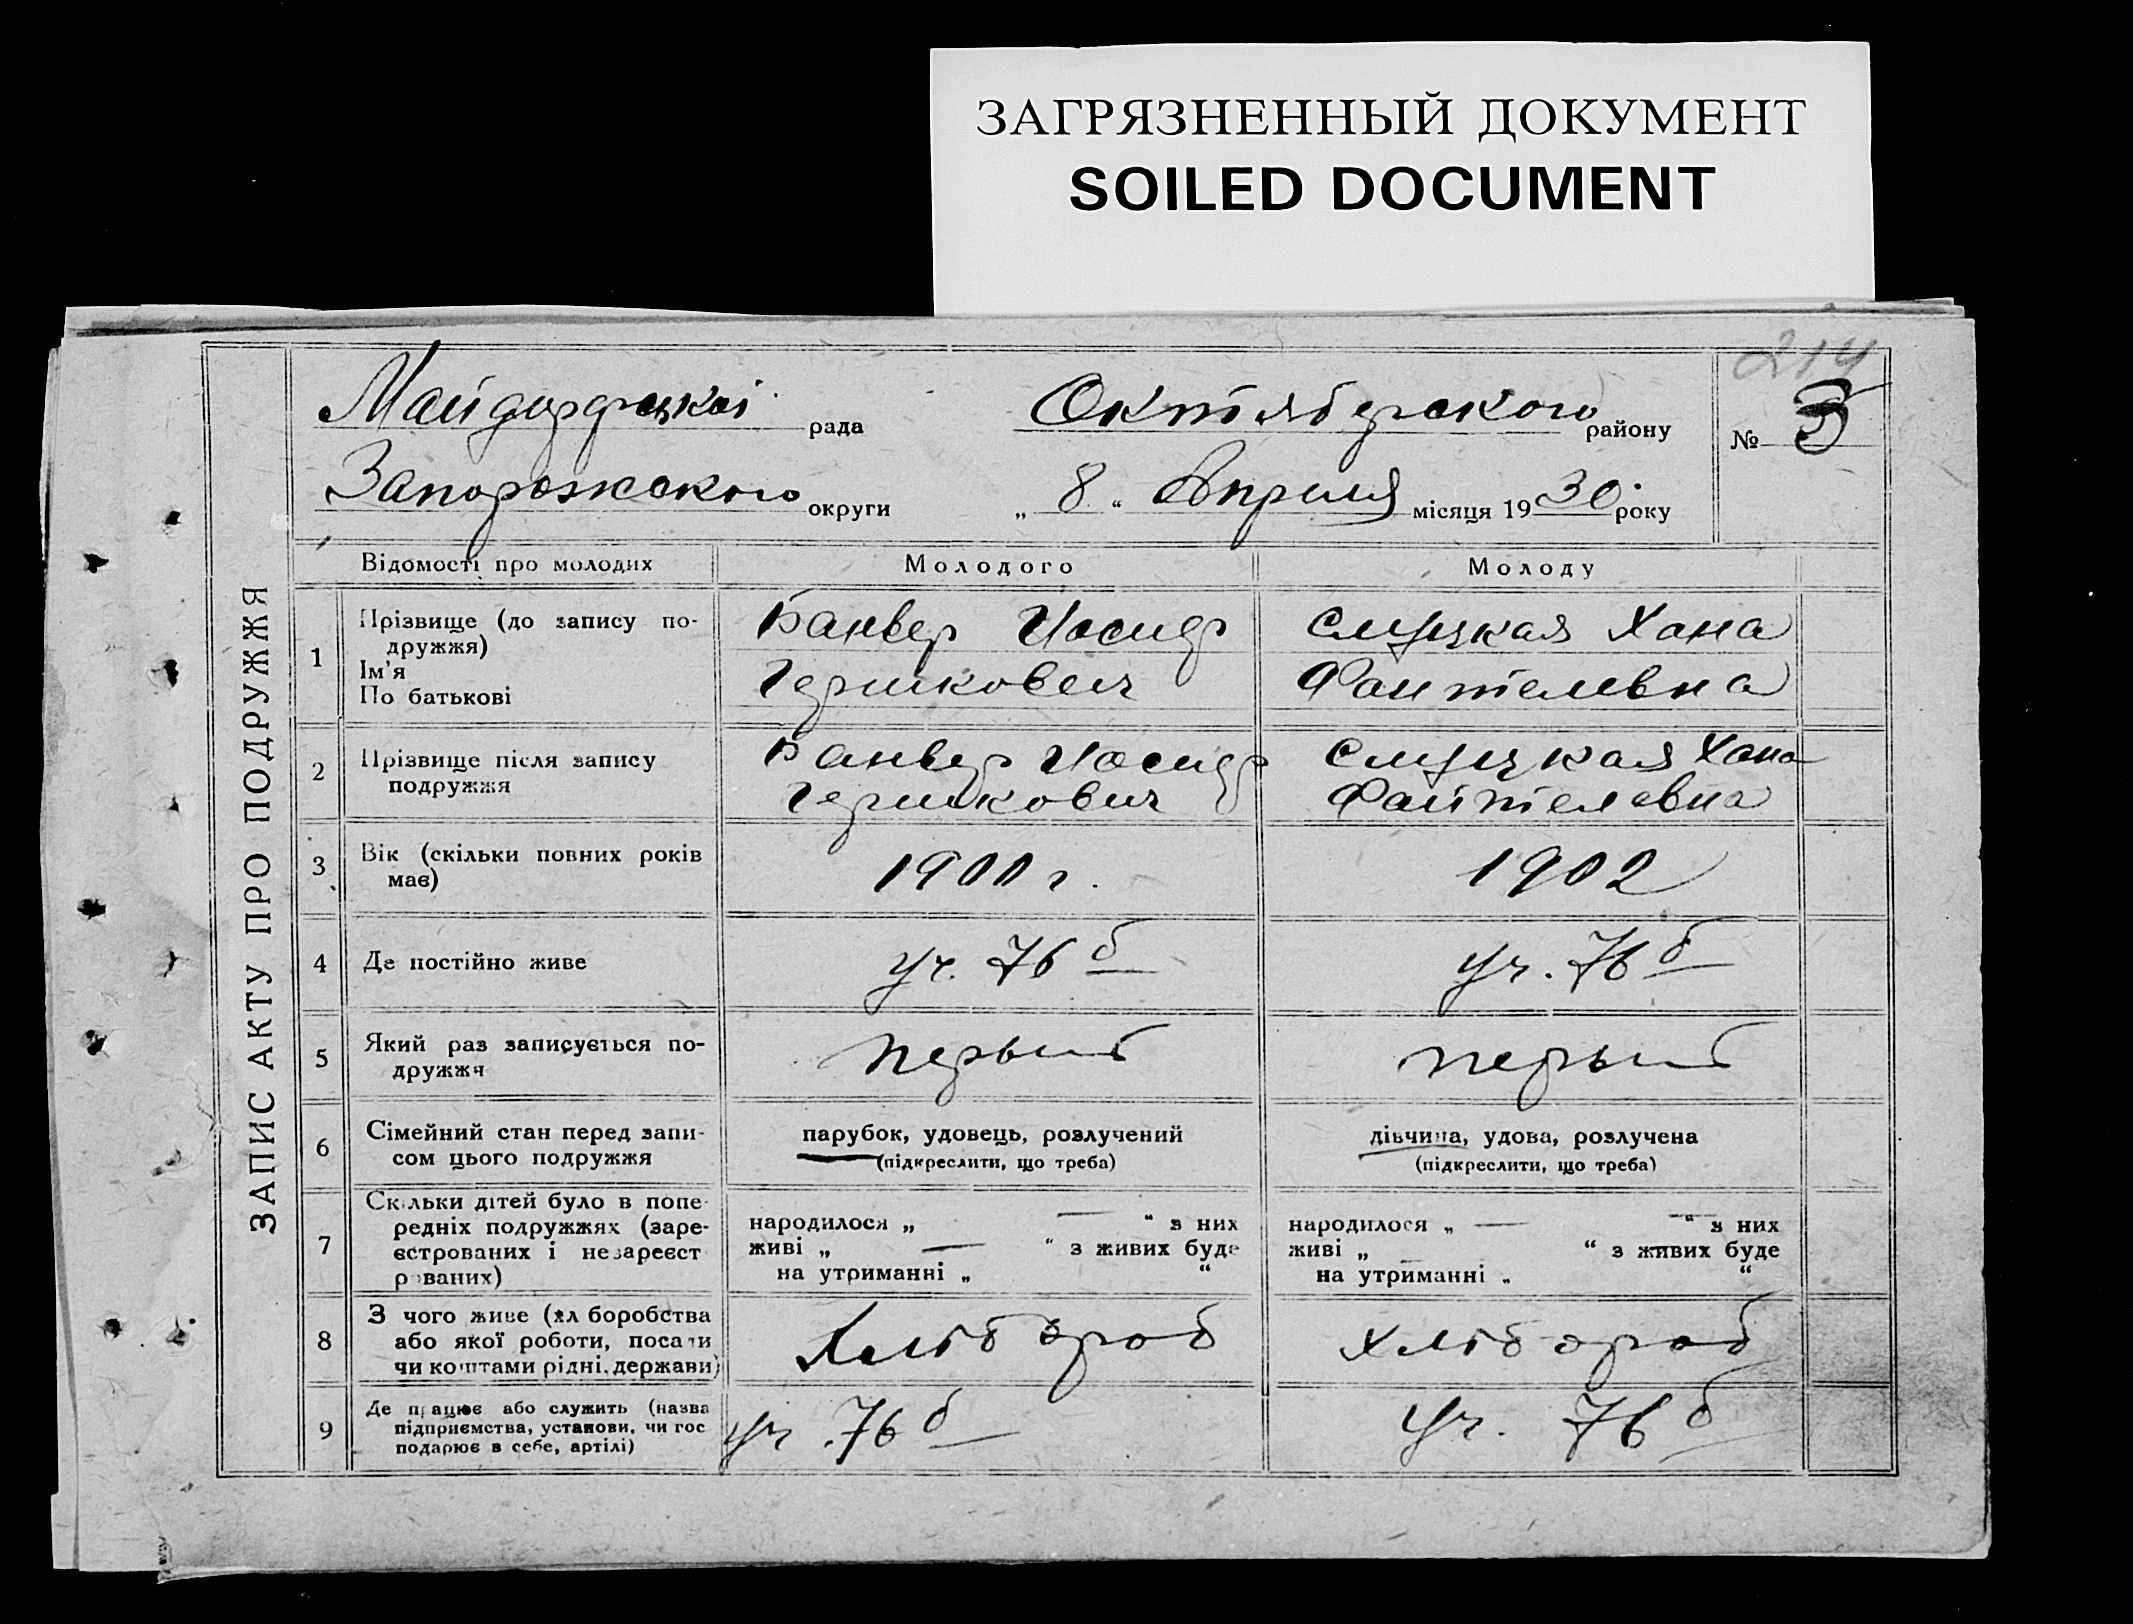 ЗАГРЯЗНЕННЫЙ ДОКУМЕНТ
SOILED DOCUMENT
214
Майдорфської рада Октябрского району № 3
Запорожского округи „ 8 “ Апреля місяця 1930 року
ЗАПИС АКТУ ПРО ПОДРУЖЖЯ
Відомості про молодих Молодого Молоду
1 Прізвище (до запису подружжя) Ім’я По батькові
Банвер Иосиф
Гершкович
Слуцкая Хана
Файтелевна
2 Прізвище після запису
подружжя
Банвер Иосиф
Гершкович
Слуцкая Хана
Файтелевна
3 Вік (скільки повних років
має)
1900 г.
1902
4 Де постійно живе уч. 76 б уч. 76 б
5 Який раз записується по-
дружжя
первый
первый
6 Сімейний стан перед запи-
сом цього подружжя
парубок, удовець, розлучений
(підкреслити, що треба)
дівчина, удова, розлучена
(підкреслити, що треба)
7 Скільки дітей було в попе-
редніх подружжях (заре-
єстрованих і незареєст
рованих)
народилося „ — “ з них
живі „ — “ з живих буде
на утриманні „ “
народилося „ — “ з них
живі „ — “ з живих буде
на утриманні „ “
8 З чого живе (хл боробства
або якої роботи, посади
чи коштами рідні, держави)
Хлібороб
Хлібороб
9 Де працює або служить (назва
підприємства, установи, чи гос
подарює в себе, артілі)
уч. 76 б
уч. 76 б